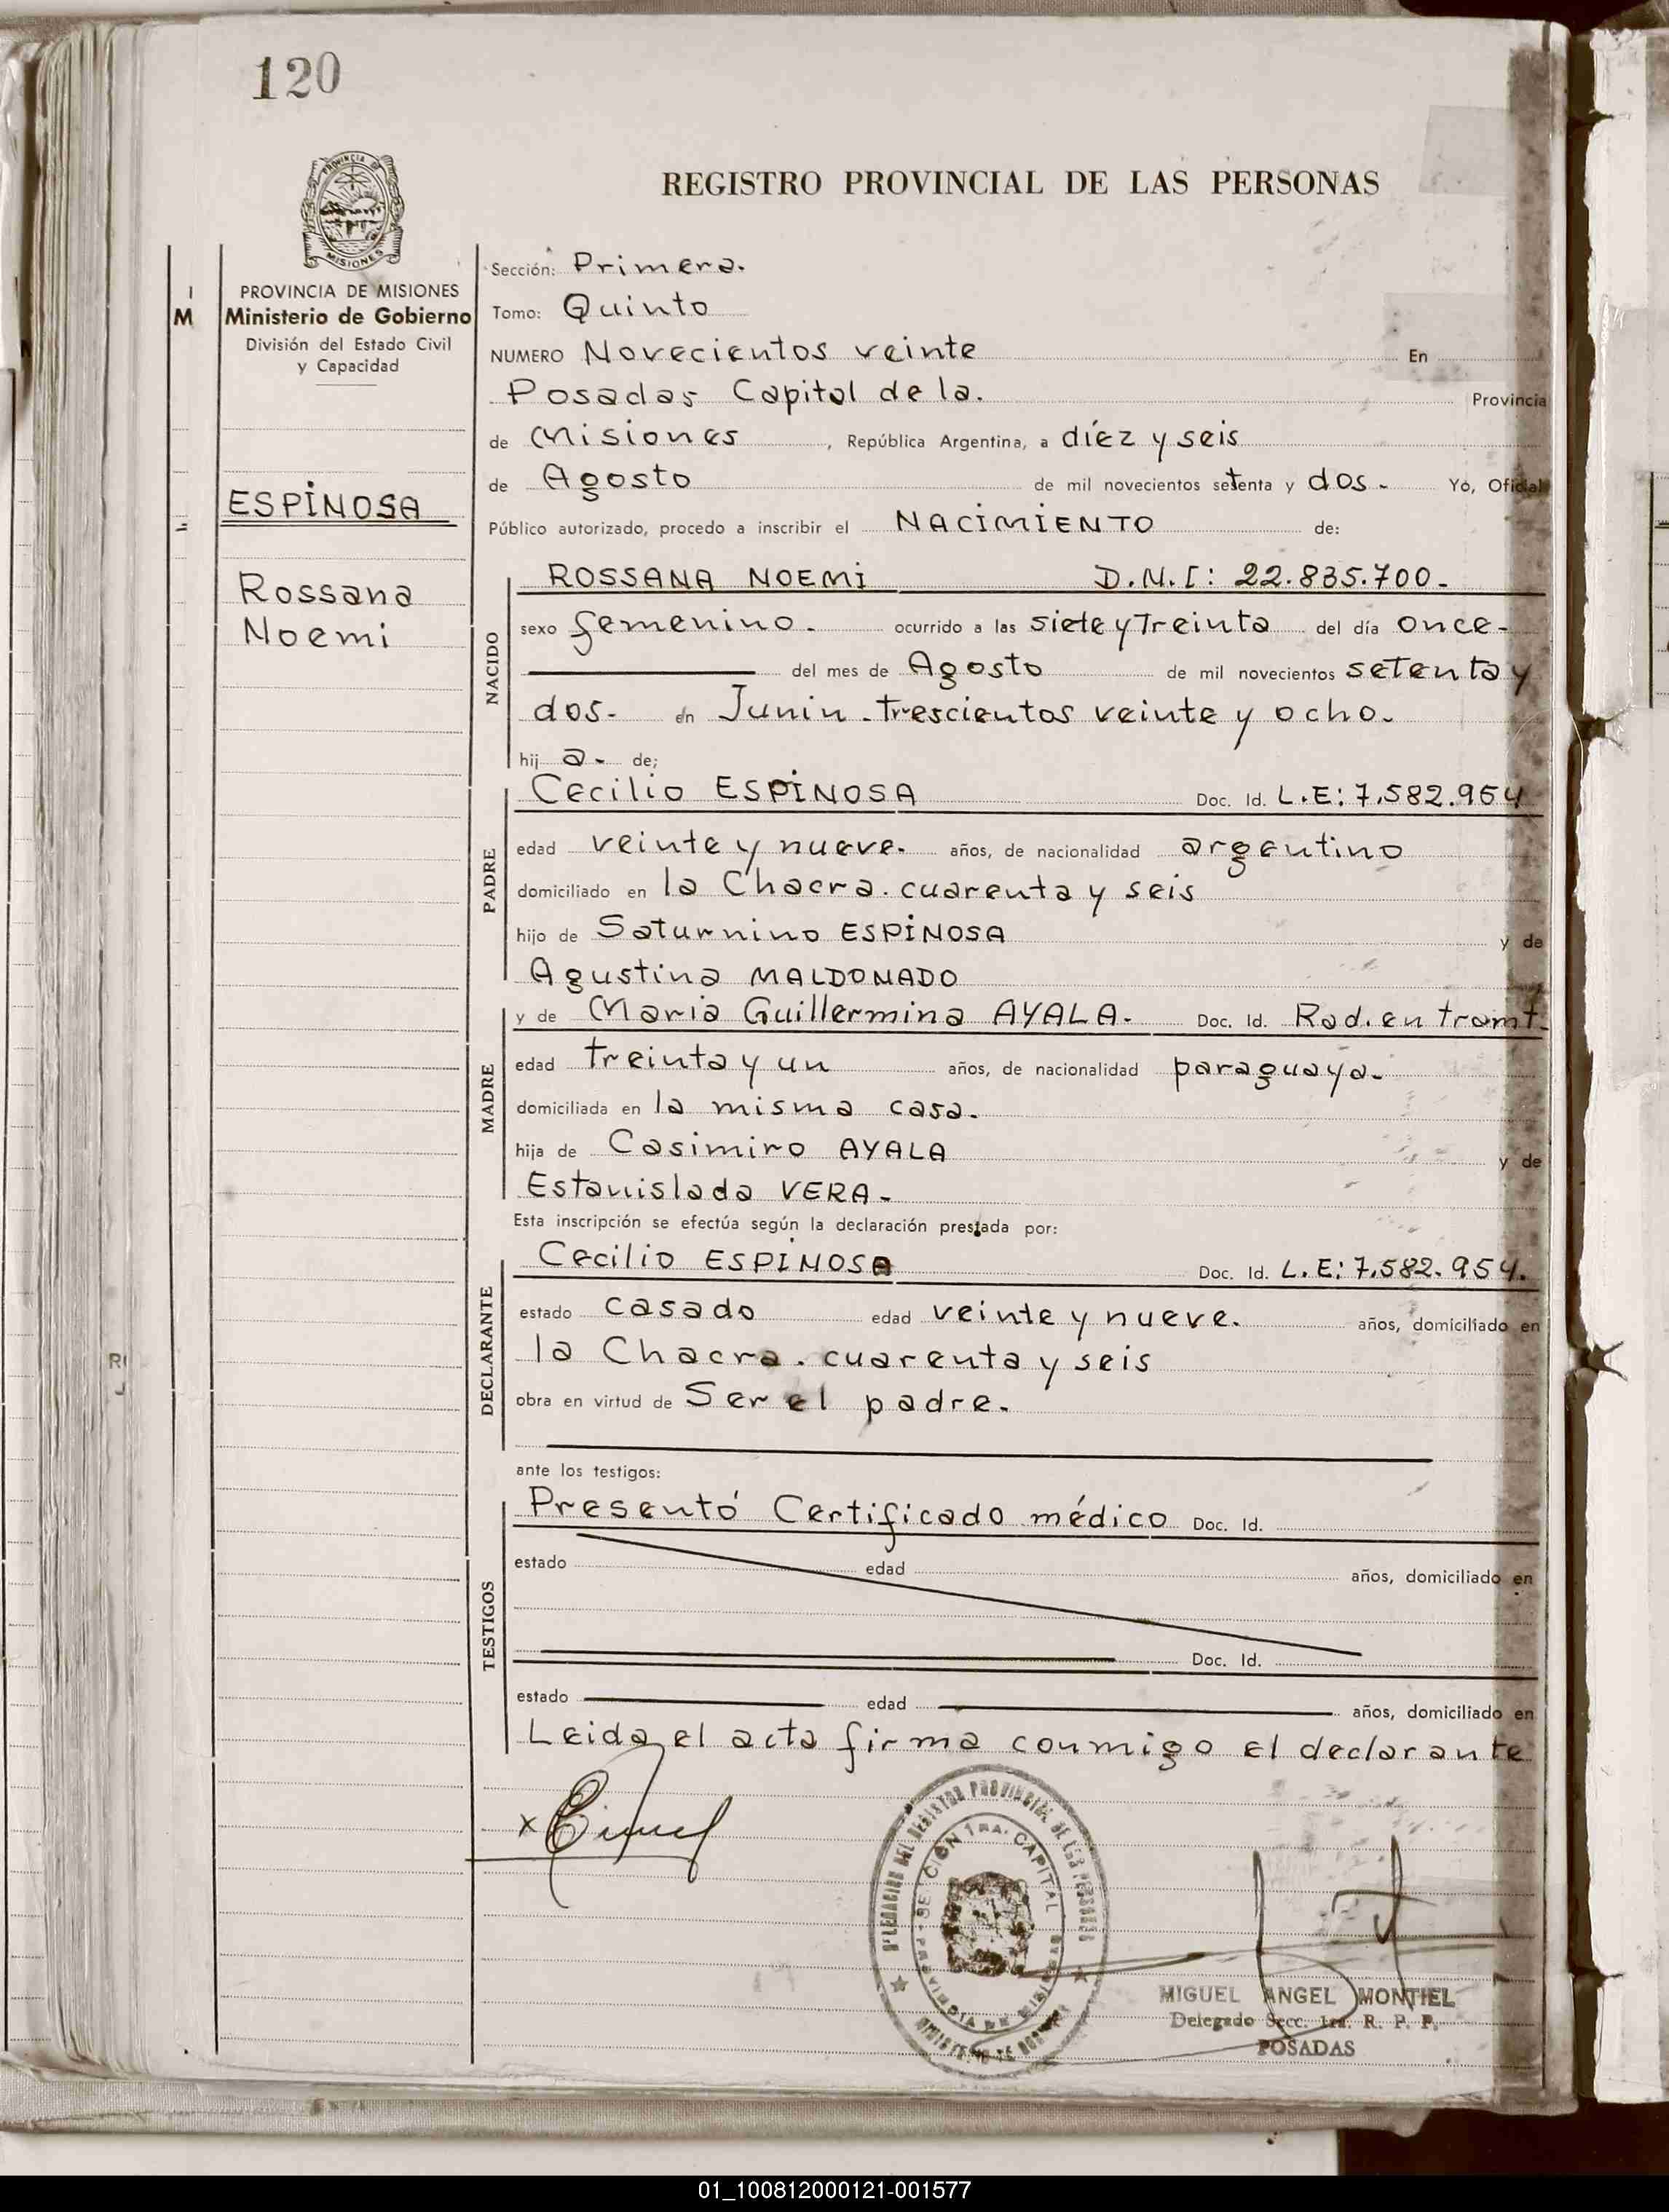 120
PROVINCIA DE
MISIONES
REGISTRO PROVINCIAL DE LAS PERSONAS
PROVINCIA DE MISIONES
Ministerio de Gobierno
División del Estado Civil
y Capacidad
M
ESPINOSA
Rossana
Noemi
Sección: Primera.
Tomo: Quinto
NUMERO Novecientos veinte En
Posadas Capital de la. Provincia
de Misiones, República Argentina, a díez y seis
de Agosto de mil novecientos setenta y dos. Yo, Oficial
Público autorizado, procedo a inscribir el NACIMIENTO de:
NACIDO
ROSSANA NOEMI D.N.I: 22.835.700.
sexo femenino. ocurrido a las siete y Treinta del día once.
del mes de Agosto de mil novecientos setenta y
dos. en Junin. trescientos veinte y ocho.
hij a. de;
PADRE
Cecilio ESPINOSA Doc. Id. L.E: 7.582.954
edad veinte y nueve. años, de nacionalidad argentino
domiciliado en la Chacra. cuarenta y seis
hijo de Saturnino ESPINOSA y de
Agustina MALDONADO
MADRE
y de Maria Guillermina AYALA. Doc. Id. Rad. en tramt.
edad treinta y un años, de nacionalidad paraguaya.
domiciliada en la misma casa.
hija de Casimiro AYALA y de
Estanislada VERA.
Esta inscripción se efectúa según la declaración prestada por:
DECLARANTE
Cecilio ESPINOSA Doc. Id. L.E: 7.582.954.
estado casado edad veinte y nueve. años, domiciliado en
la Chacra. cuarenta y seis
obra en virtud de Ser el padre.
ante los testigos:
TESTIGOS
Presentó Certificado médico Doc. Id.
estado edad años, domiciliado en
Doc. Id.
estado edad años, domiciliado en
Leida el acta firma conmigo el declarante
DELEGACION DEL REGISTRO PROVINCIAL DE LAS PERSONAS
SECCION 1RA. CAPITAL
PROVINCIA DE MISIONES
MINISTERIO DE GOBIERNO
MIGUEL ANGEL MONTIEL
Delegado Secc. 1ra. R. P. P.
POSADAS
01_100812000121-001577